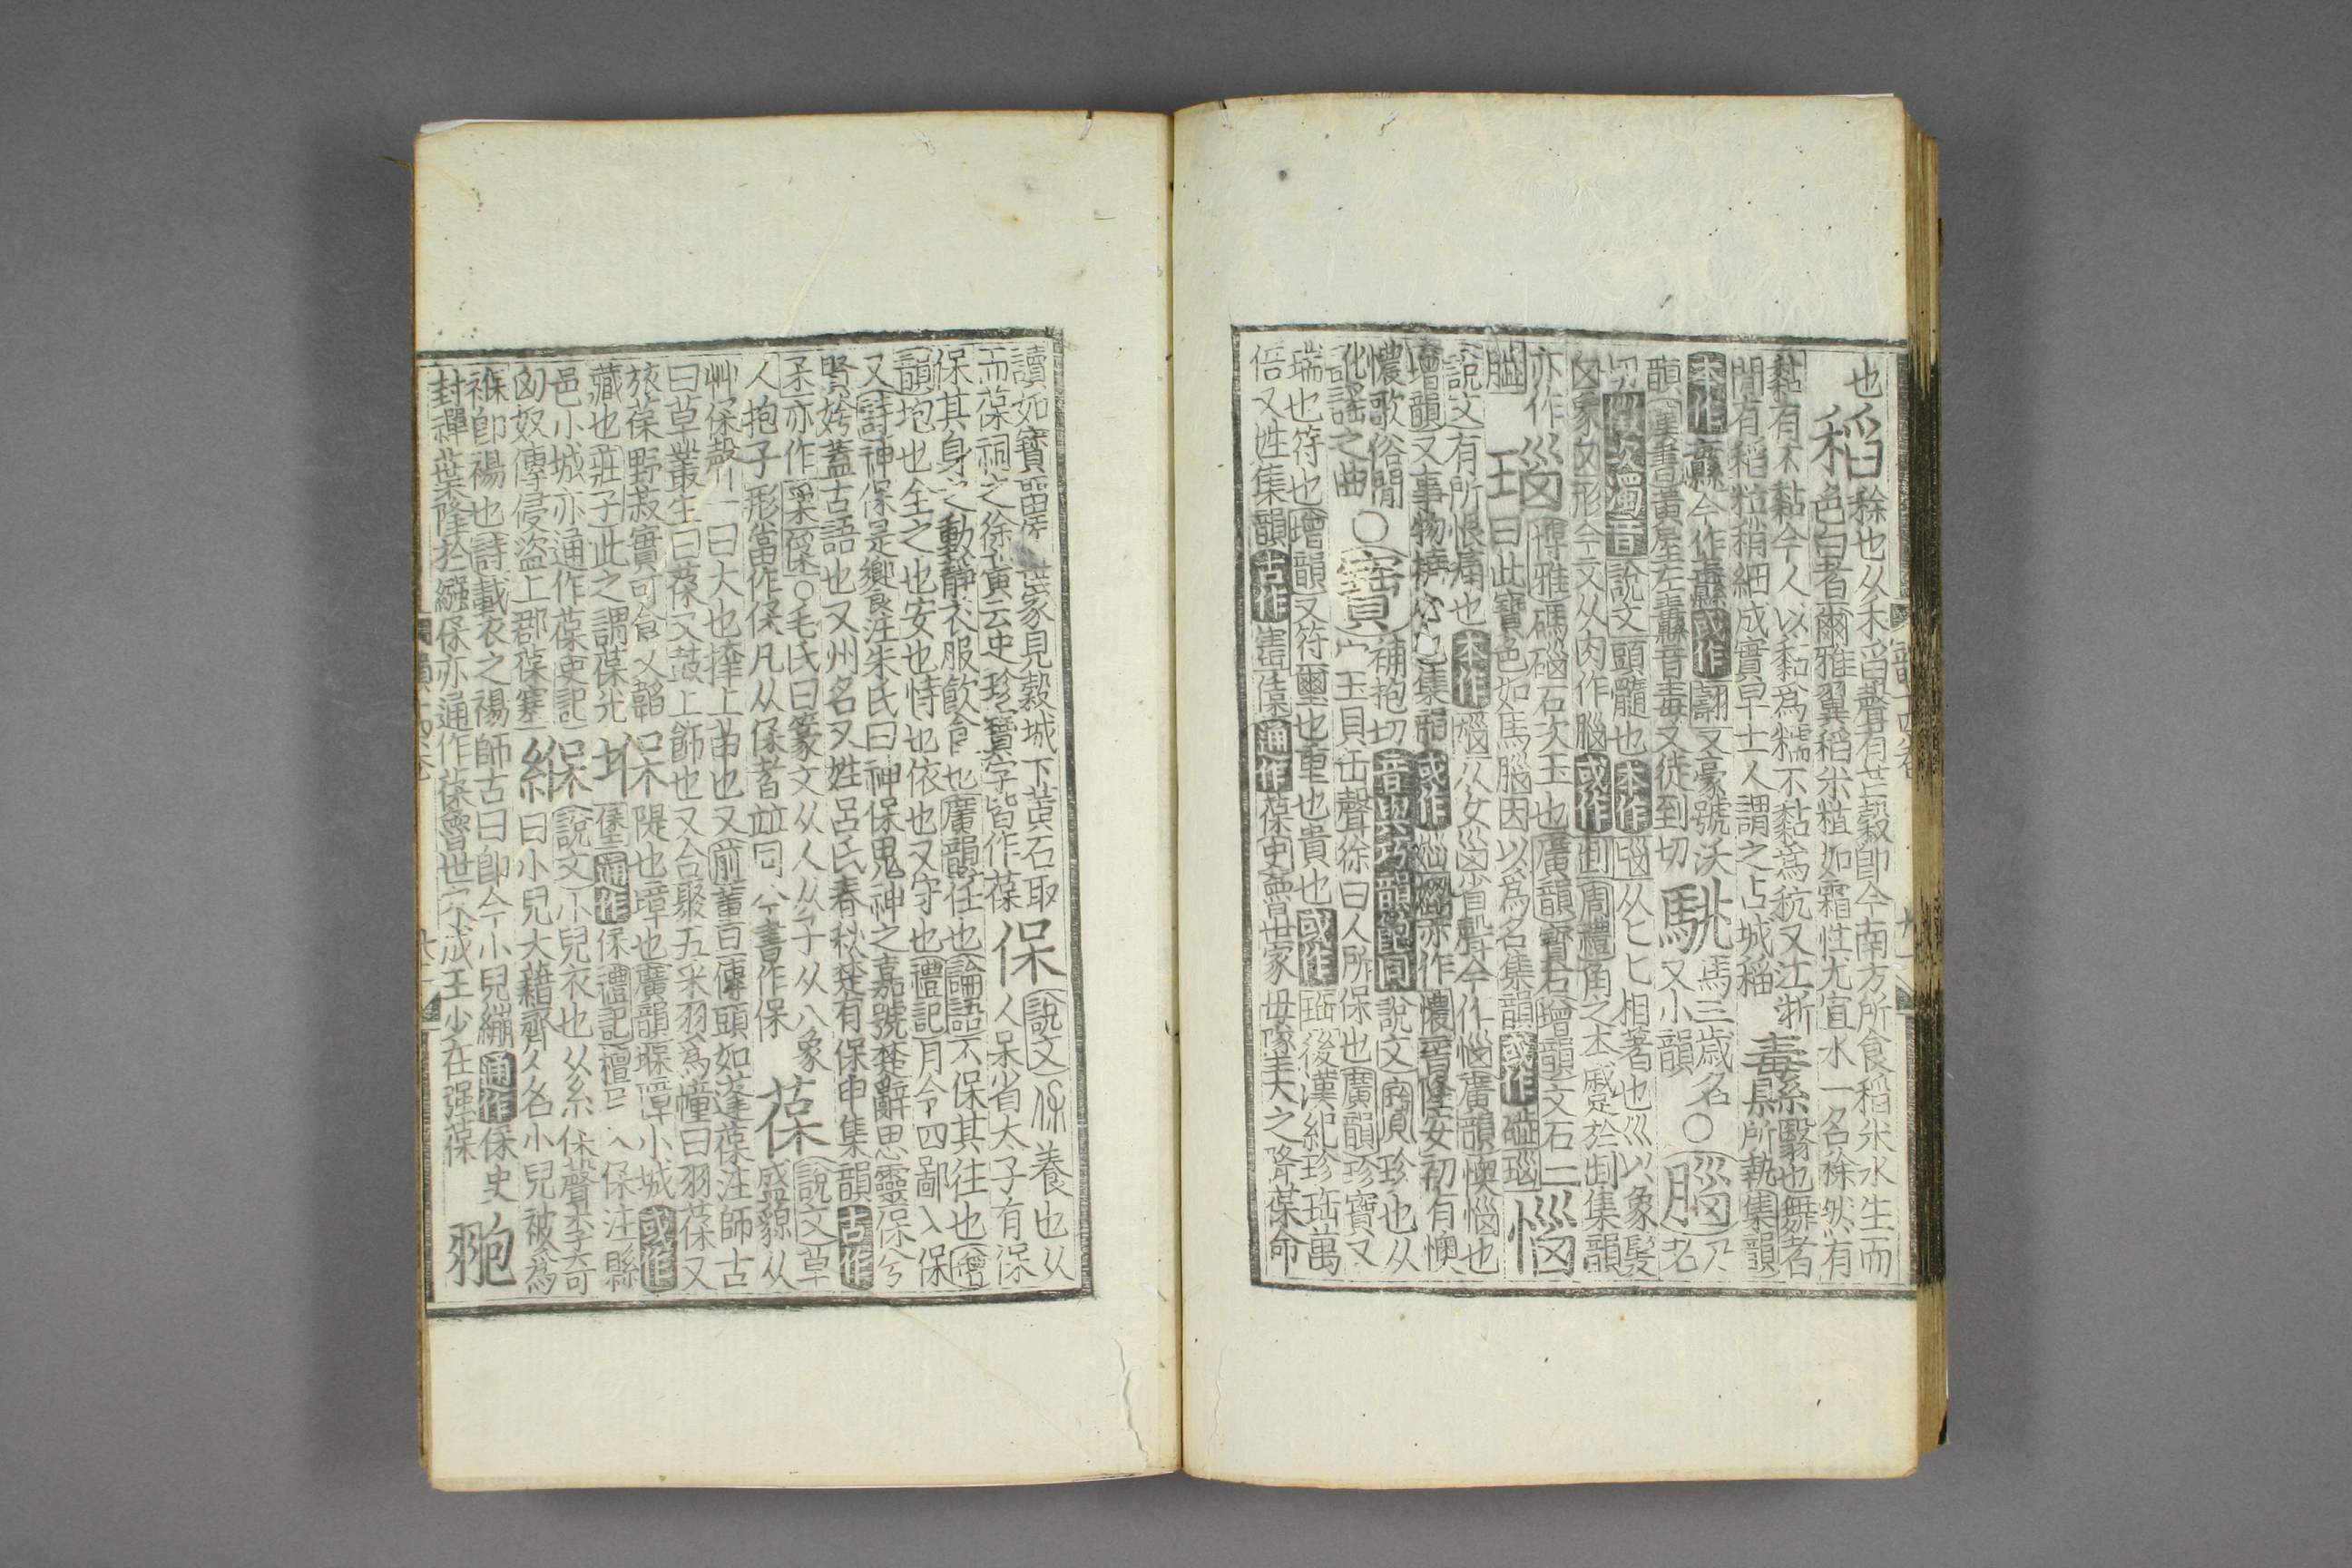 也稻稌也从禾舀聲有芒穀卽今南方所食稻米水生而
色白者爾雅翼稻米粒如霜性尤宜水一名稌然有
黏有不黏今人以黏爲糯不黏爲秔又江浙
間有稻粒稍細成實早土人謂之占城稻
纛翳也舞者所執集韻
本作纛今作纛或作翿又豪號沃
韻漢書黃屋左纛音毒又徒到切
駣馬三歲名
又小韻
○腦乃老
切次濁音說文頭髓也本作匘从匕匕相著也巛以象髮
囟象囟形今文从肉作腦或作剴周禮角之本蹙於剴集韻
亦作𦛁
瑙博雅碼碯石次玉也廣韻寶石增韻文石二
曰此寶色如馬腦因以爲名集韻或作碯
惱
說文有所恨痛也本作㛴从女㐫省聲今作惱廣韻懊惱也
增韻又事物撓心集韻或作亦作憹晉隆安初有懊
憹歌俗閒
訛謠之曲
○寶補抱切音與巧韻飽同說文珍也从
宀玉貝缶聲徐曰人所保也廣韻珍寶又
瑞也符也增韻又符璽也重也貴也或作珤後漢紀珍珤萬
倍又姓集韻古作通作葆史魯世家毋墜天之降葆命
讀如寶留侯世家見穀城下黃石取
而葆祠之徐廣云史珍寶字皆作葆
保說文养也从
人呆省太子有保
保其身之動靜衣服飲食也廣韻任也論語不保其往也增
韻抱也全之也安也恃也依也又守也禮記月令四鄙入保
又詩神保是饗注朱氏曰神保鬼神之嘉號楚辭思靈保兮
賢姱蓋古語也又州名又姓呂氏春秋楚有保申集韻古作
𤓽亦作○毛氏曰篆文从人从子从八象
人抱子形當作保凡从保者並同今書作保
葆說文草
盛貌从
艸保聲一曰大也擇上苗也又前燕旦傳頭如蓬葆注師古
曰草叢生曰葆又鼓上飾也又合聚五采羽爲幢曰羽葆又
旅葆野菽實可食又韜
藏也莊子此之謂葆光
堡隄也障也廣韻堢障小城或作
通作保禮記檀弓入保注縣
邑小城亦通作葆史記
匈奴傳侵盜上郡葆塞
緥說文小兒衣也从糸保聲李奇
曰小兒大藉齊人名小兒被爲
褓卽裼也詩載衣之裼師古曰卽今小兒繃通作保史
封禪葉業隆於繈保亦通作葆魯世家成王少在強葆
鴇